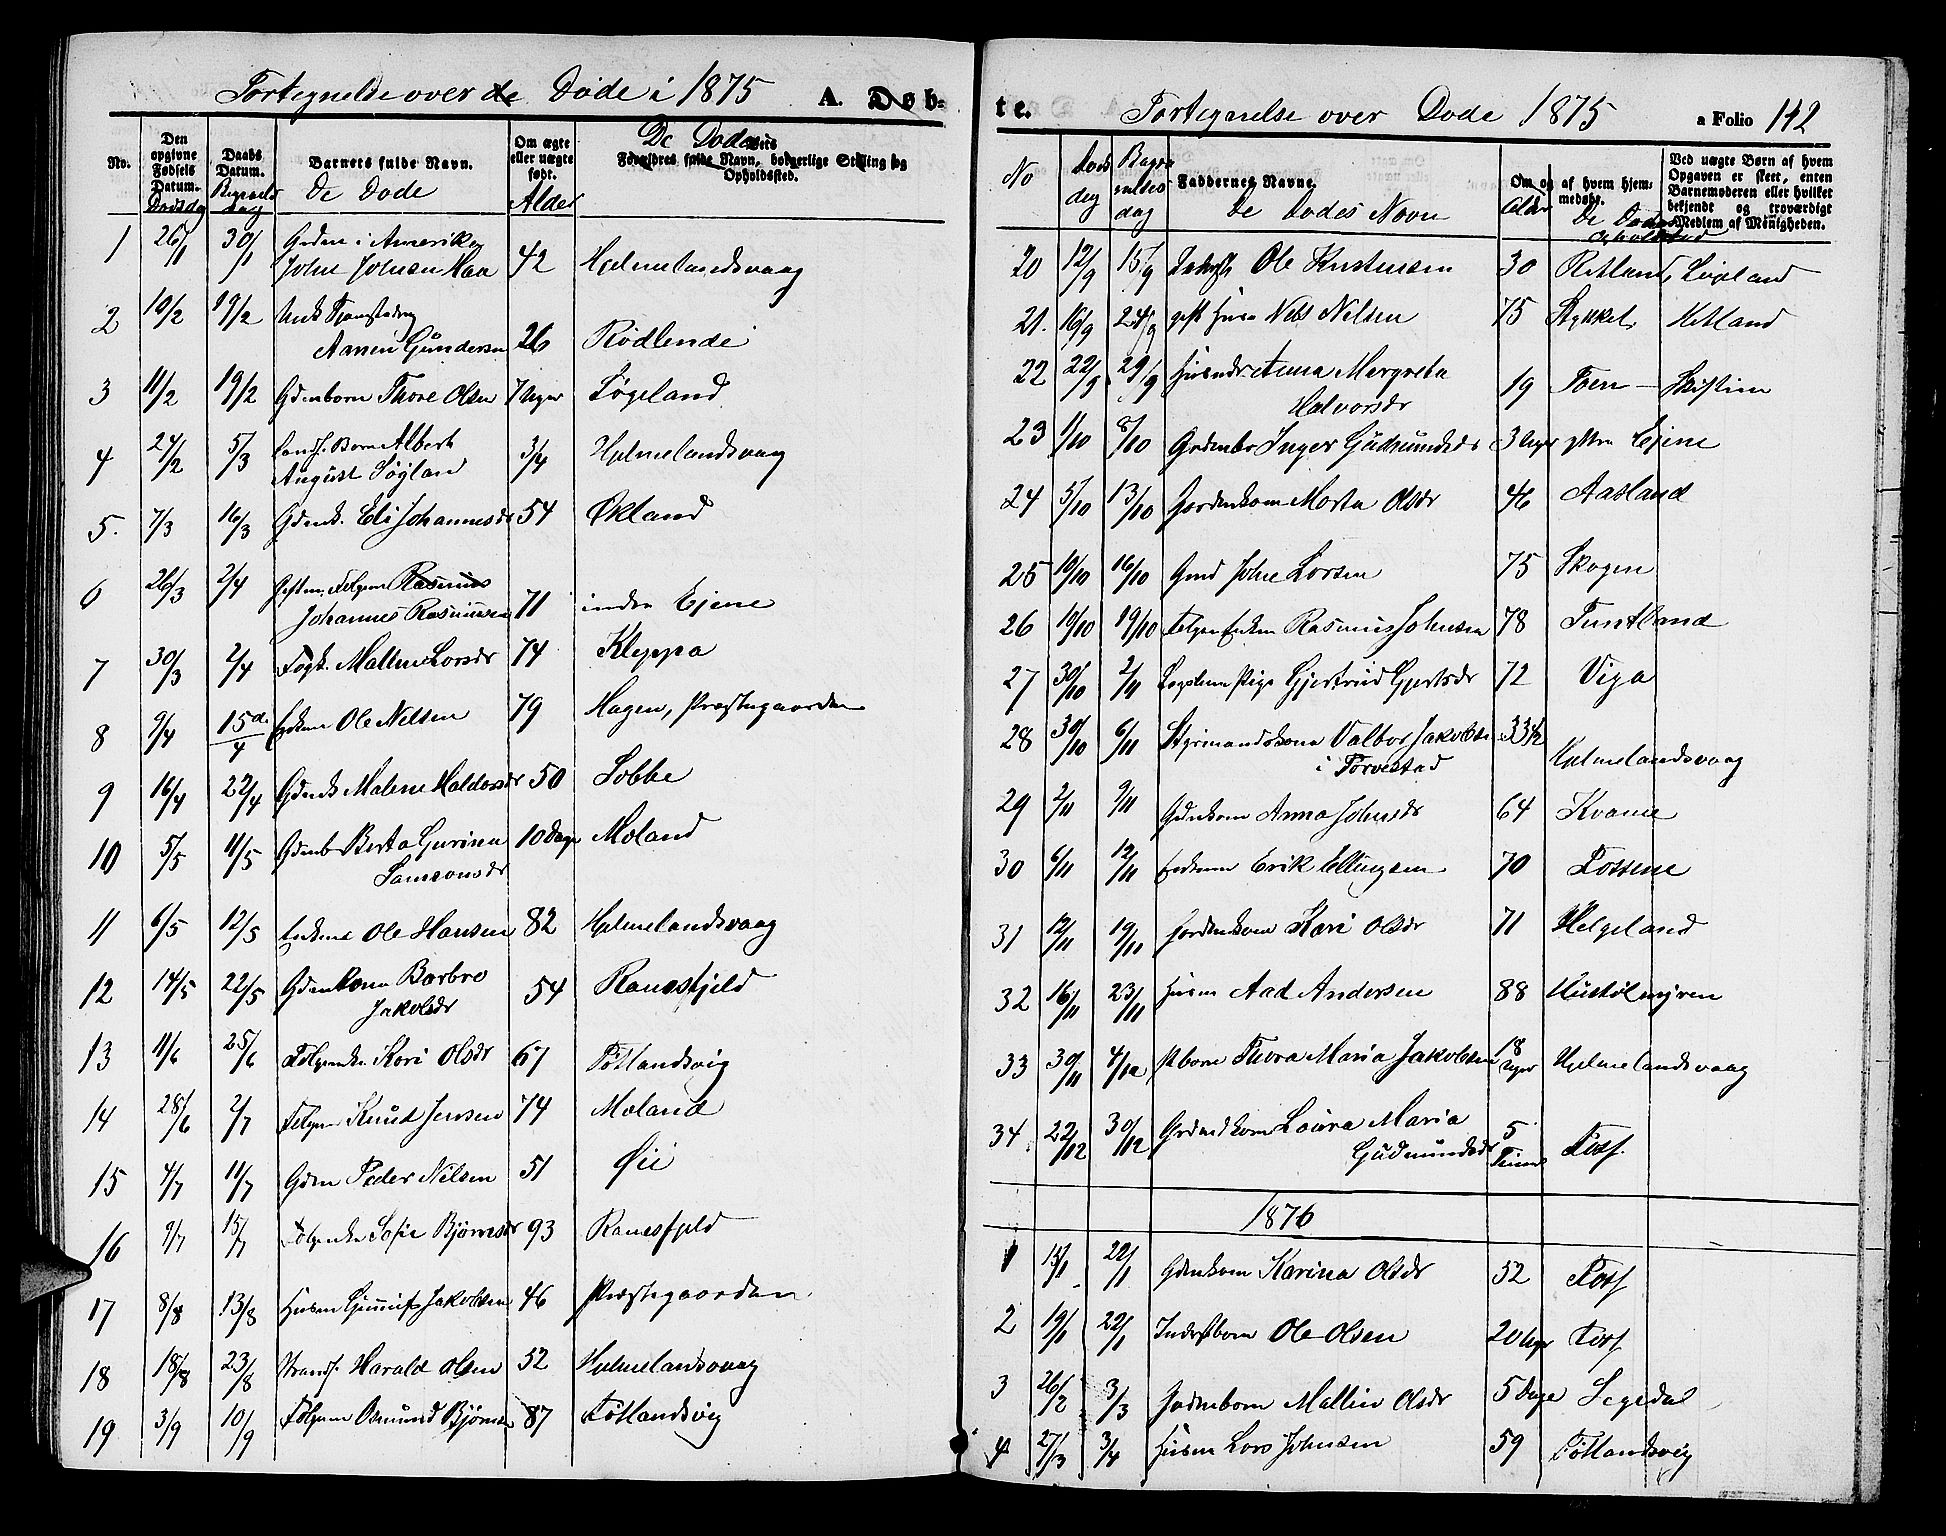 Fortegnelse over de Døde i 1875 A. Døb-
Nr. Den opgivne Fødsels Datum. Dødsdag Daabs Datum. Begravelsdag Barnets fulde Navn. De Døde Om ægte eller uægte født. Alder De Dødes Forældres fulde Navn, borgerlige Stilling og Opholdssted.
1 26/1 30/1 Gdmn i Amerika
John Johnsen Maa 42 Hjelmelandsvaag
2 10/2 19/2
Aanen Gundersen 26 Rødlende
3 11/2 19/2 Gdmbarn Thore Olsen 7 Uger Søgeland
4 24/2 5/3 Barn Albert
August Søgland 3/4 Hjelmelandsvaag
5. 7/3 16/3 Gdmk. Eli Johannesdr 54 Økland
6 26/3 2/4 Rasmus
Johannes Rasmussen 71 indre Ejene
7 30/3 2/4 Malene Larsdr 74 Kleppa
8 9/4 15de/4 Enkem Ole Nilsen 79 Hagen, Præstegaarden
9 16/4 22/4 Gdmk Malene Haldorsdr 50 Sobbe
10 5/5 11/5 Gdmb Berta Gurina
Samsonsdr 10 Dage Moland
11 6/5 12/5 Enkem Ole Hansen 82 Hjelmelandsvaag
12 14/5 22/5 Gdmkona Barbro
Jakobsdr 54 Ramsfjeld
13 11/6 25/6 Følgemke Kari Olsdr 67 Tøtlandsvig
14 28/6 2/7 Følgem Knud Jensen 74 Moland
15 4/7 11/7 Gdm Peder Nilsen 51 Øie
16 9/7 15/7 Følgemke Sofie Bjørnsdr 93 Ramsfjeld
17 8/8 13/8 Husm Jakobsen 46 Præstegaarden
18 18/8 23/8 Strands. Harald Olsen 52 Hjelmelandsvaag
19 3/9 10/9 Følgem Osmund Bjørnsen 87 Tøtlandsvig
te. Fortegnelse over Døde 1875 a Folio 142
No Dødsdag Begravelsesdag Faddernes Navne. De Dødes Navn Om og af hvem hjemmedøbt. Alder De Dødes Opholdsted Ved uægte Børn af hvem Opgaven er skeet, enten Barnemoderen eller hvilket bekjendt og troværdigt Medlem af Menigheden.
20 12/9 15/9 Inderst Ole Kristensen 30 Retland, Søgland
21. 16/9 24/9 gift Husm Nils Nilsen 75 Stykket, Hetland
22 22/9 29/9 Anna Margreta
Halvorsdr 19 Toen
23 1/10 8/10 Inger Gudmundsdr 3 Uger ytre Ejene
24 5/10 13/10 Gardmkone Marta Olsdr 46 Aasland
25 10/10 16/10 Gmd John Larsen 75 Skogen
26 10/10 19/10 Rasmus Johnsen 78 Tuntland
27 30/10 2/11 Pige Gjertrud Gjertsdr 72 Viga
28 30/10 6/11 Styrmandskone Valbor Jakobsen
i Torvestad 33 1/2 Hjelmelandsvaag
29 2/11 9/11 Gdmkone Anna Johnsdr 64 Kvame
30 6/11 12/11 Enkem Erik Ellingsen 70 Fossene
31 12/11 19/11 Gardmkone Kari Olsdr 71 Helgeland
32 16/11 23/11 Husm Aad Andersen 88 Hustølmyren
33 30/11 4/12 Thora Maria Jakobsen 18 Uger Hjelmelandsvaag
34 22/12 30/12 Laura Maria
Gudmundsdr 5 Timer Foss.
1876
1 15/1 22/1 Gdmkone Karina Olsdr 52 Foss
2 19/1 22/1 Inderstbarn Ole Olsen 20 Uger Foss
3 26/2 3/3 Gardmbarn Mallin Olsdr 5 Dage Segedal
4 27/3 3/4 Husm Lars Johnsen 59 Tøtlandsvig